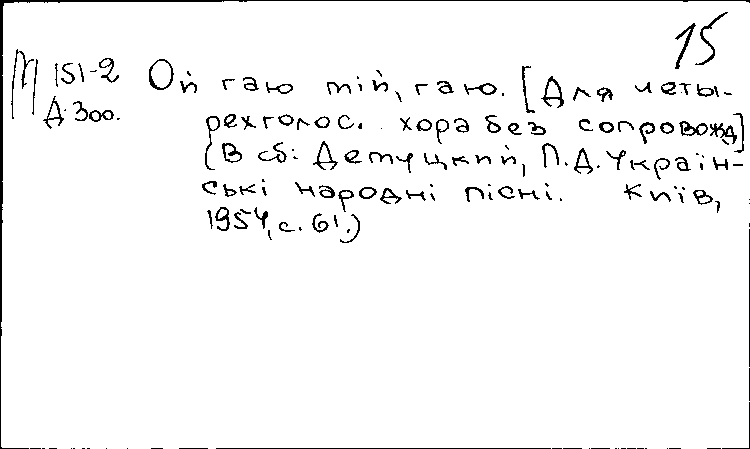 15
М 151-2 Ой гаю мій, гаю. [Для четы-
Д 300. рехголос. хора без сопровожд]
(В сб: Демуцкий, П.Д. Україн-
ські народні пісні. Київ,
1954, с. 61.)